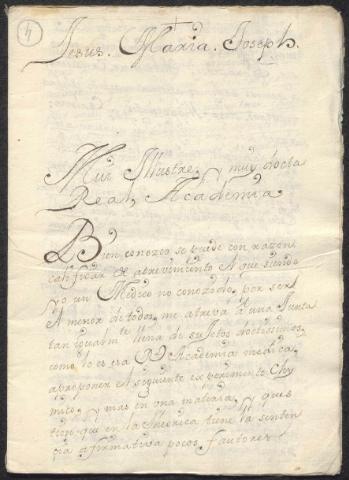 4
Jesus. Maria. Joseph.
Mui Illustre, y muy docta
Real Academia
Bien conozco se puede con razon
calificar de atrevimiento el que siendo
yo un Medico no conozido, por ser
el menor de todos, me atreva à una Junta
tan igualmte. llena de sujetos doctissimos,
como lo es esa Rl. Academia medica,
a proponer el siguiente experimento Chy
mico, y mas en una materia, y ques
tion que en la Theorica tiene la senten
cia afirmativa pocos fautores